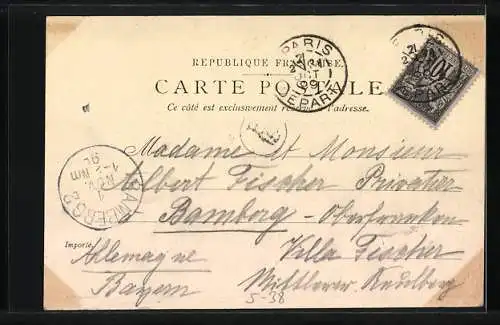 PARIS
DEPART
RÉPUBLIQUE FRANÇAISE.
CARTE POSTALE
Ce côté est exclusivement réservé à l'adresse.
Madame et Monsieur
Albert Fischer Privatier
Bamberg - Oberfranken
Villa Fischer
Importé.
Allemagne
Mittlerer Kaulberg
Bayern
BAMBERG 2
5-38